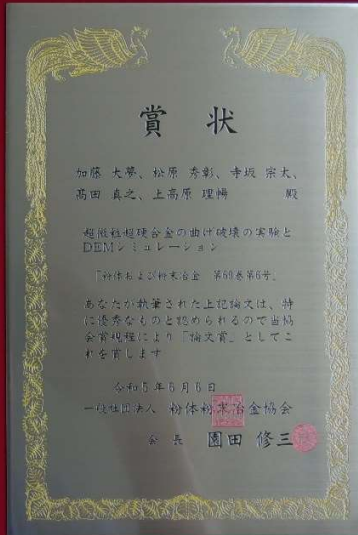 賞状
加藤 大夢、松原 秀彰、寺坂 宗太、
髙田 真之、上高原 理暢 殿
超微粒超硬合金の曲げ破壊の実験と
DEMシミュレーション
「粉体および粉末冶金 第69巻第6号」
あなたが執筆された上記論文は、特
に優秀なものと認められるので当協
会賞規程により「論文賞」としてこ
れを賞します
令和5年6月6日
一般社団法人 粉体粉末冶金協会
会長 園田 修三